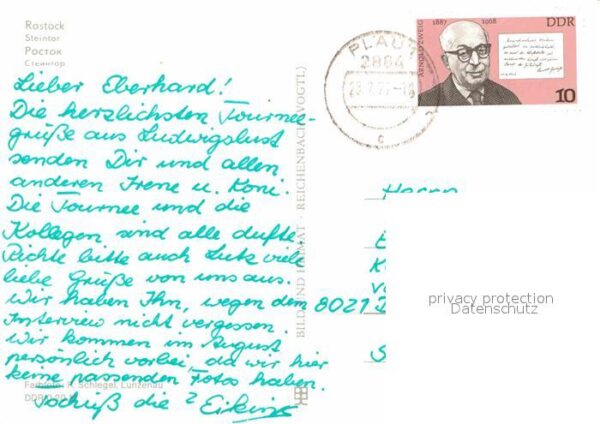 Rostock
Steintor
Росток
Стейнтор
Lieber Eberhard!
Die herzlichsten Tournee-
grüße aus Ludwigslust
senden Dir und allen
anderen Irene u. Koni.
Die Tournee und die
Kollegen sind alle dufte.
Richte bitte auch Lutz viele
liebe Grüße von uns aus.
Wir haben Ihn, wegen dem
Interview nicht vergessen.
Wir kommen im August
persönlich vorbei, da wir hier
keine passenden Fotos haben.
Tschüß die 2
Farbfoto: R. Schlegel, Lunzenau
DDR
BILD UND HEIMAT · REICHENBACH (VOGTL)
PLAU
2864
c
ARNOLD ZWEIG
1887 1968
DDR
10
Herrn
8021
privacy protection
Datenschutz